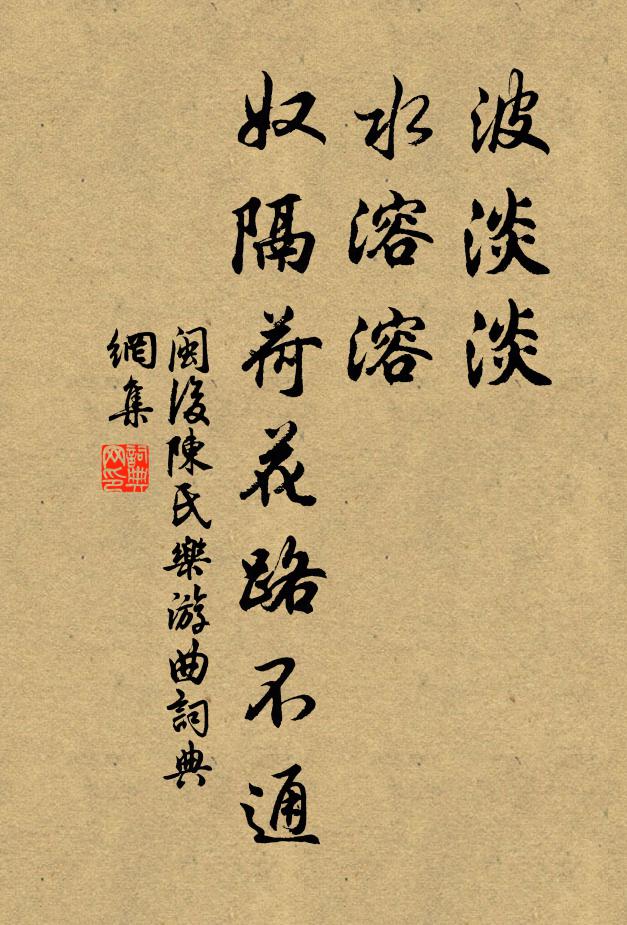 波淡淡
水溶溶
奴隔荷花路不通
閩後陳氏樂游曲詞典
網集
詞典網印